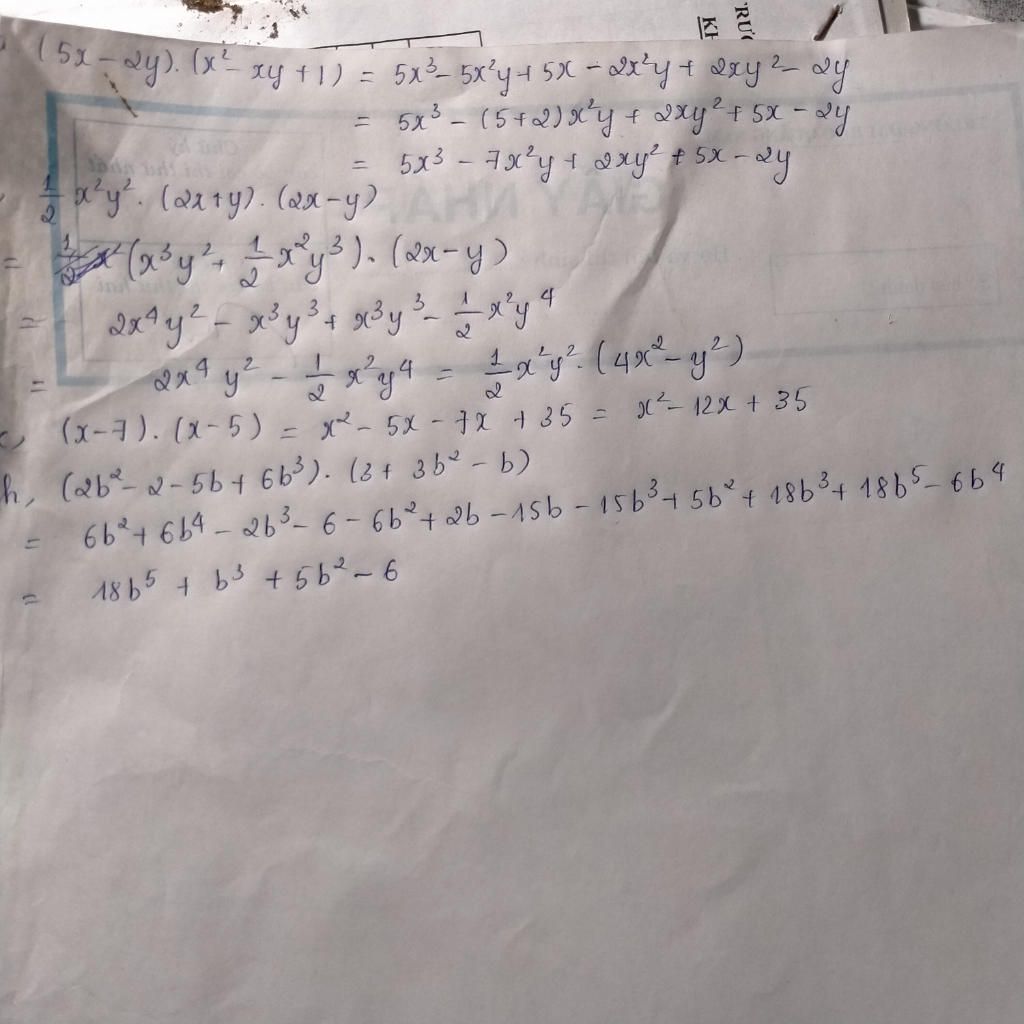 RƯỜ
KH
(5x - 2y). (x² - xy + 1) = 5x³ - 5x²y + 5x - 2x²y + 2xy² - 2y
= 5x³ - (5+2)x²y + 2xy² + 5x - 2y
= 5x³ - 7x²y + 2xy² + 5x - 2y
1/2 x²y². (2x+y). (2x-y)
= (x³y² + 1/2 x²y³). (2x-y)
= 2x⁴y² - x³y³ + x³y³ - 1/2 x²y⁴
= 2x⁴y² - 1/2 x²y⁴ = 1/2 x²y². (4x² - y²)
c, (x-7). (x-5) = x² - 5x - 7x + 35 = x² - 12x + 35
h, (2b² - 2 - 5b + 6b³). (3 + 3b² - b)
= 6b² + 6b⁴ - 2b³ - 6 - 6b² + 2b - 15b - 15b³ + 5b² + 18b³ + 18b⁵ - 6b⁴
= 18b⁵ + b³ + 5b² - 6